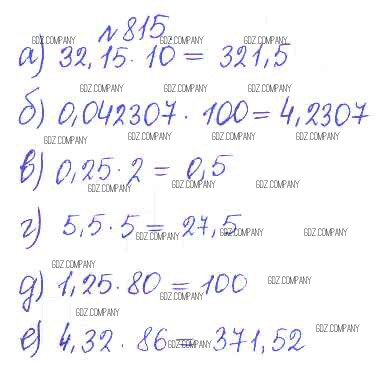 №815.
GDZ.COMPANY GDZ.COMPANY GDZ.COMPANY
а) 32,15·10 = 321,5
GDZ.COMPANY GDZ.COMPANY GDZ.COMPANY
б) 0,042307·100 = 4,2307
GDZ.COMPANY GDZ.COMPANY GDZ.COMPANY
в) 0,25·2 = 0,5
GDZ.COMPANY GDZ.COMPANY GDZ.COMPANY
г) 5,5·5 = 27,5
GDZ.COMPANY GDZ.COMPANY GDZ.COMPANY
GDZ.COMPANY
д) 1,25·80 = 100
GDZ.COMPANY GDZ.COMPANY
GDZ.COMPANY
е) 4,32·86 = 371,52
GDZ.COMPANY GDZ.COMPANY